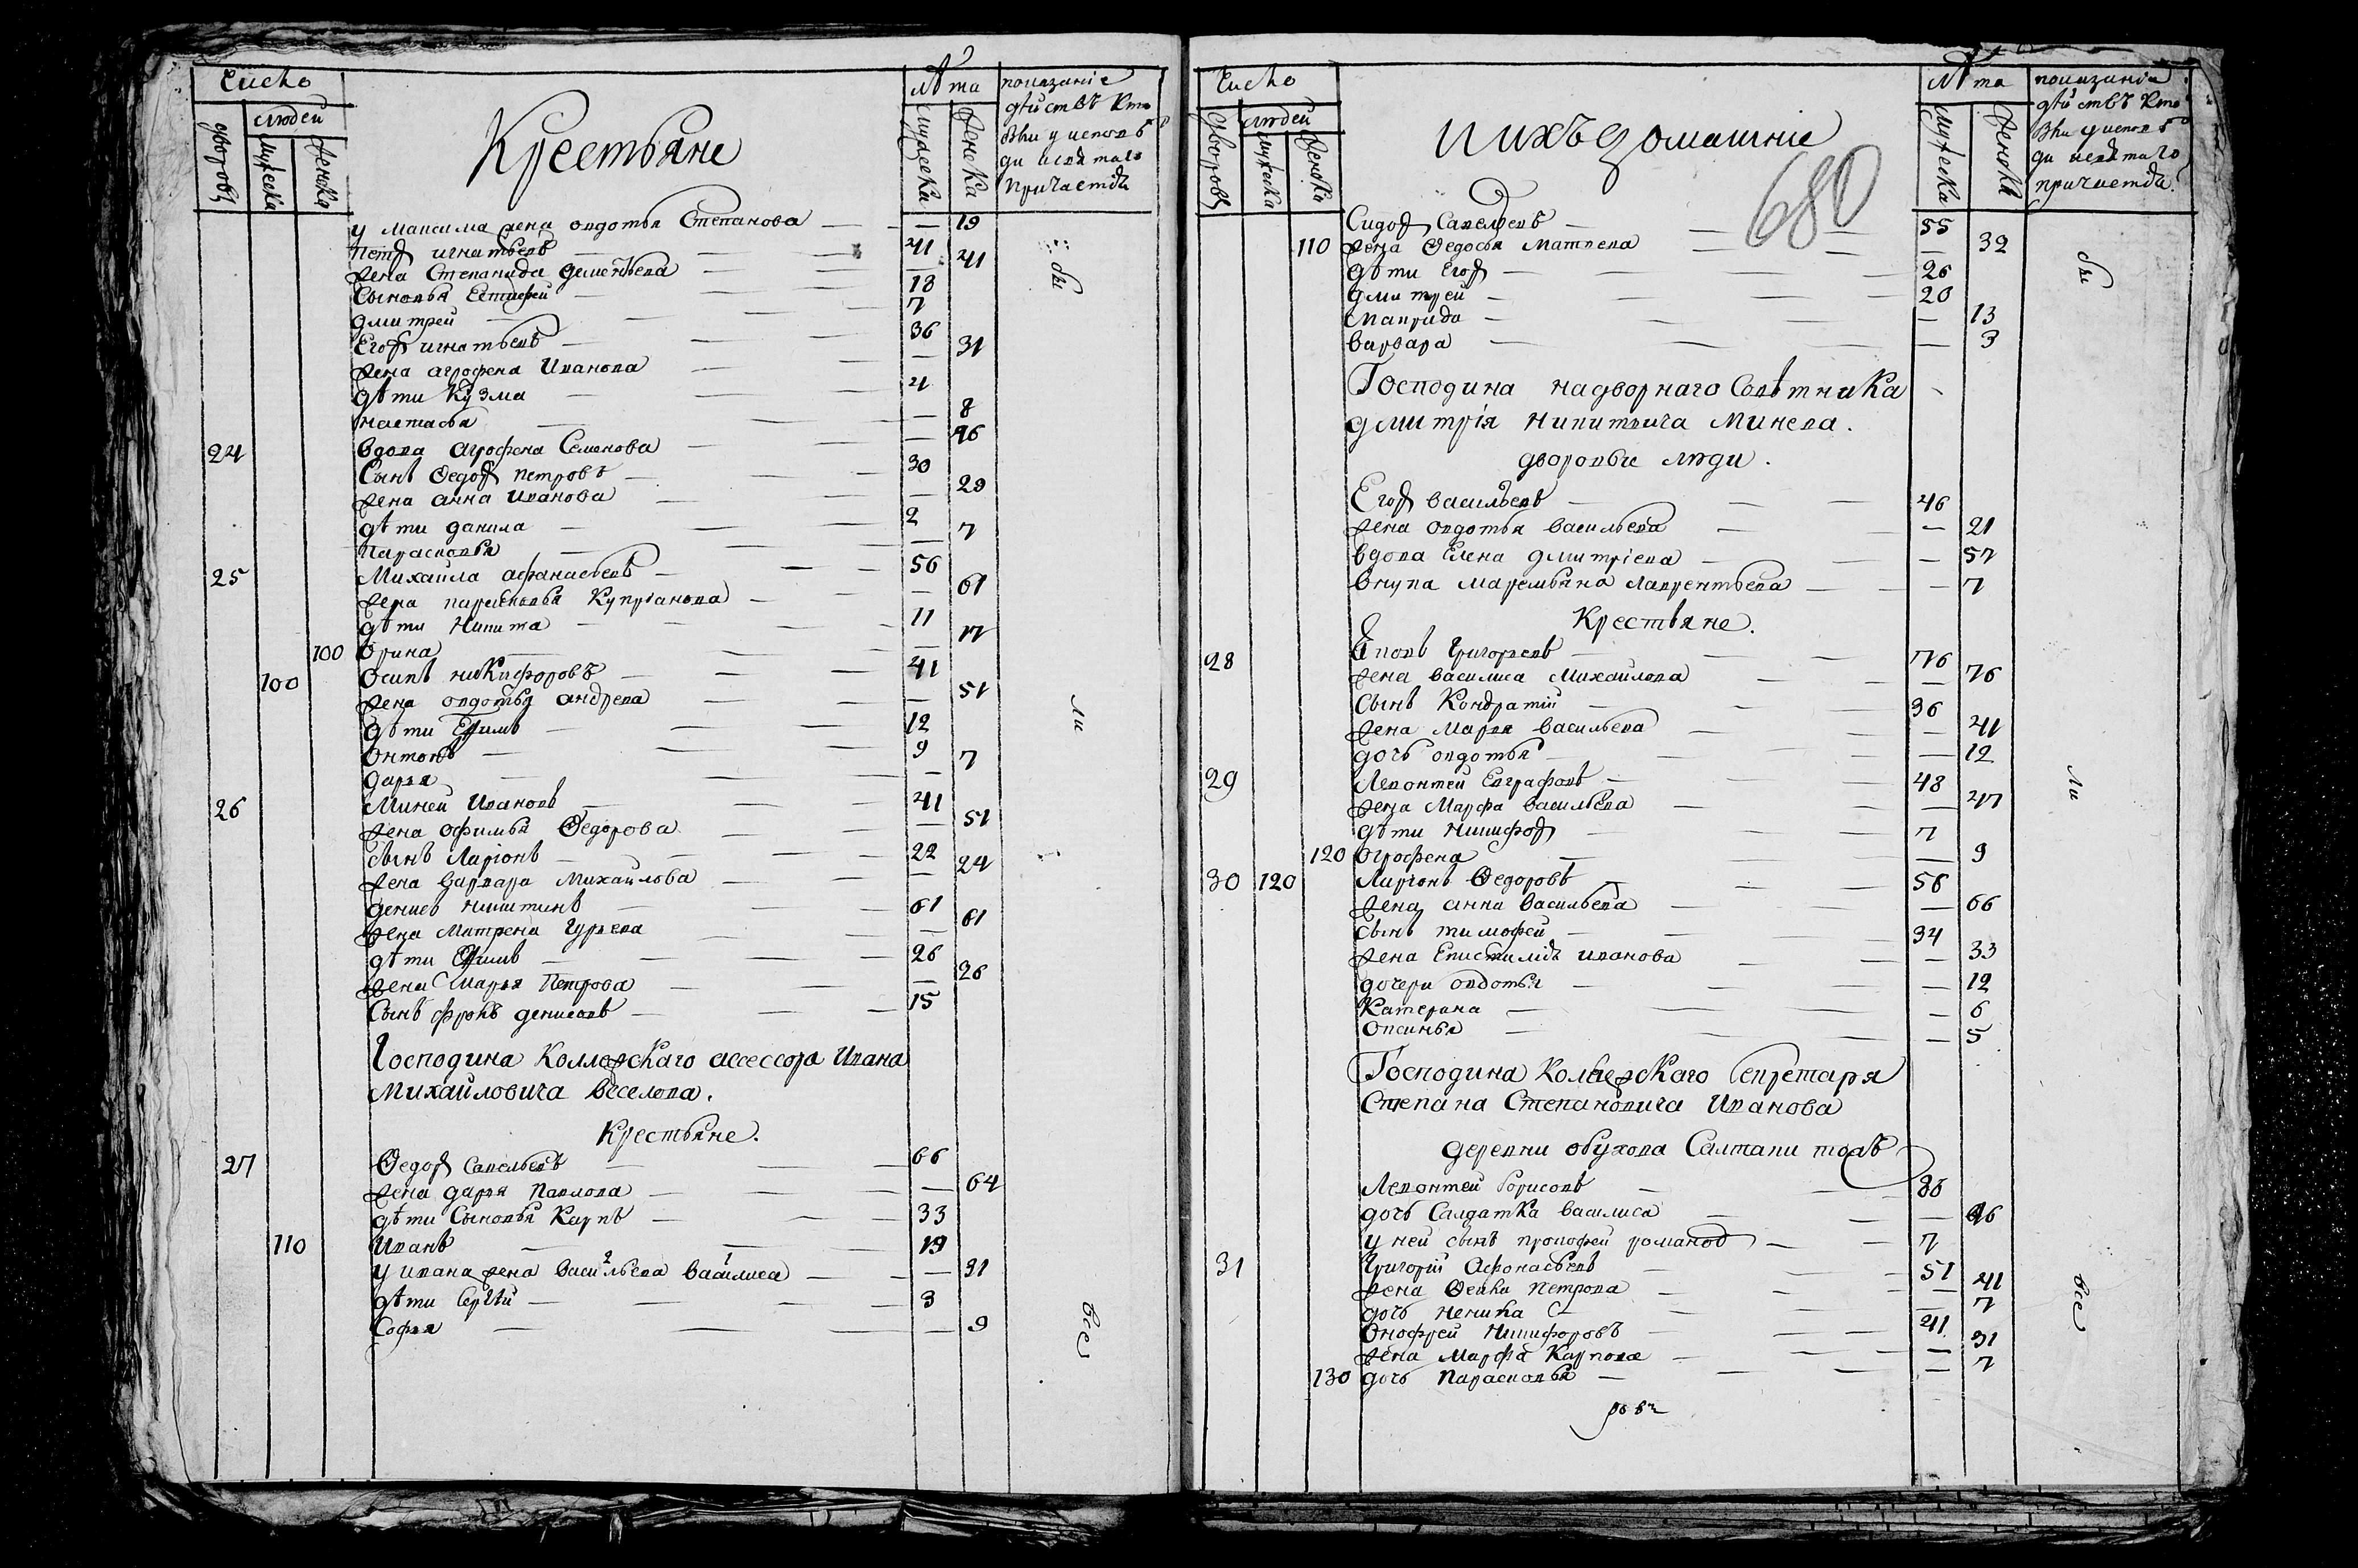 Число
людей
дворовъ
мужеска
женска
Крестьяне
Лѣта
мужеска
женска
показаніе
дѣйствъ кто
былъ у исповѣ
ди и святаго
причастія
у Максима жена овдотья Степанова — 19
Петръ игнатьевъ 41
жена Степанида дементьева — 41
Сыновья Естифей 18
дмитрей 7
Егоръ игнатьевъ 36
жена агрофена Иванова — 31
дѣти Кузма 4
настасья — 8
24 вдова агрофена Семенова — 46
Сынъ Ѳедоръ петровъ 30
жена анна Иванова — 29
дѣти данила 2
Парасковья — 7
25 Михаила афанасьевъ 56
жена парасковья Купрiанова — 61
дѣти Никита 11
100 Орина — 17
100 Осипъ никифоровъ 41
жена овдотья андрева — 51
дѣти Ефимъ 12
Онтонъ 9
дарья — 7
26 Миней Ивановъ 41
жена офимья Ѳедорова — 51
сынъ Ларiонъ 22
жена варвара Михайлова — 24
денисъ никитинъ 61
жена Матрена Гурьева — 61
дѣти Ефимъ 26
жена Марья Петрова — 26
Сынъ фролъ денисовъ 15
Господина Коллежскаго ассессора Ивана
Михайловича Веселова.
Крестьяне.
27 Ѳедоръ Савельевъ 66
жена дарья Павлова — 64
дѣти Сыновья Карпъ 33
110 Иванъ 19
у ивана жена Васильева 2 василиса 1 — 31
дѣти Сергѣй 3
Софья — 9
бы
ли
все
Число
людей
дворовъ
мужеска
женска
и ихъ домашніе
680
Лѣта
мужеска
женска
показаніе
дѣйствъ кто
былъ у исповѣ
ди и святаго
причастія.
Сидоръ Савельевъ 55
110 жена Ѳедосья Матвева — 32
дѣти Егоръ 26
дмитрей 20
Маврида — 13
варвара — 3
Господина надворнаго Совѣтника
дмитрія Никитича Минева.
дворовые люди.
Егоръ васильевъ 46
жена овдотья васильева — 21
вдова Елена дмитріева — 57
внука маремьяна лаврентьева — 7
Крестьяне.
28 Григорьевъ 76
жена василиса Михайлова — 76
Сынъ Кондратій 36
жена Марья васильева — 41
дочь овдотья — 12
29 Левонтей Евграфовъ 48
жена Марфа васильева — 47
дѣти никифоръ 7
120 Огрофена — 9
30 120 Ларiонъ Ѳедоровъ 56
жена анна васильева — 66
сынъ тимофей 34
жена Епистимія иванова — 33
дочери овдотья — 12
Катерина — 6
Оксинья — 5
Господина Колежскаго Секретаря
Степана Степановича Иванова
деревни обухова Салтани тожъ
Левонтей борисовъ
дочь Салдатка василиса — 46
у ней сынъ прокофей романов 7
31 Григорій Афонасьевъ 51
жена Ѳекла Петрова — 41
дочь ненила — 7
Онофрей Никифоровъ 41
жена Марфа Карпова — 31
130 дочь Парасковья — 7
бы
ли
все